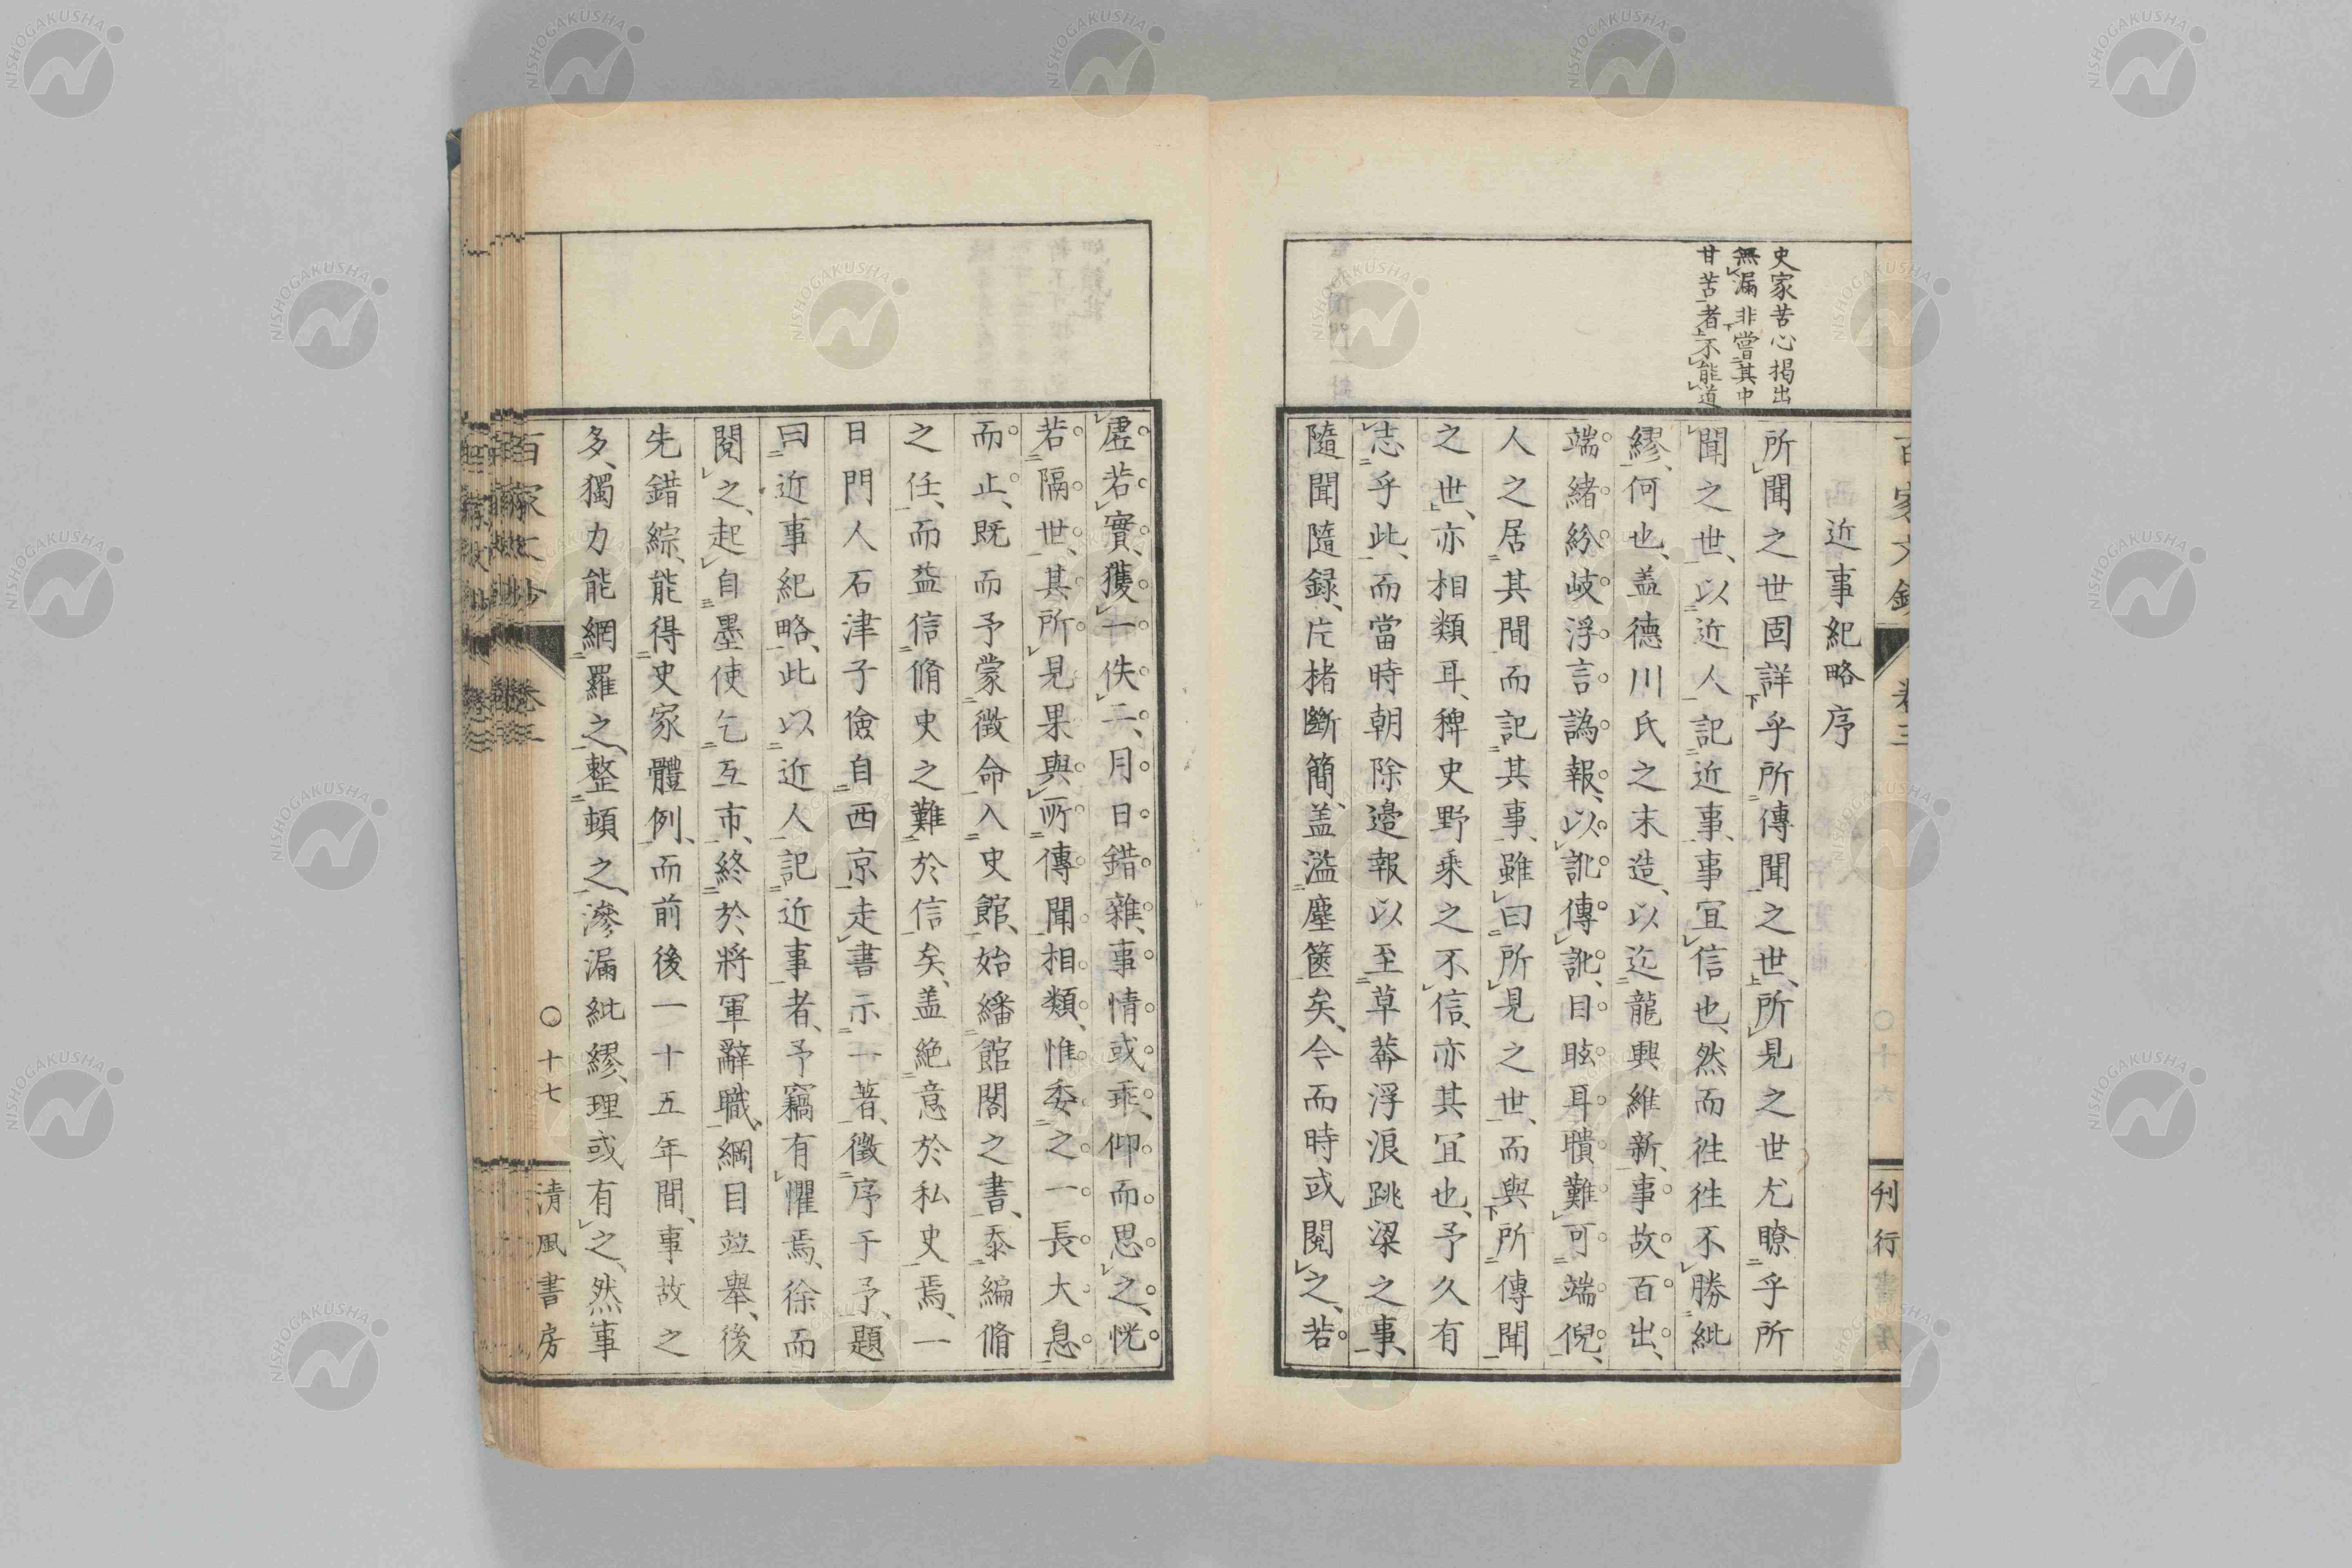 史家苦心揭出
無漏非嘗其中
甘苦者不能道
近事紀略序
所聞之世固詳乎所傳聞之世、所見之世尤瞭乎所
聞之世、以近人記近事、事宜信也、然而徃徃不勝紕
繆、何也、盖德川氏之末造、以迄龍興維新、事故百出、
端緒紛岐浮言譌報、以訛傳訛、目眩耳聵難可端倪、
人之居其間而記其事、雖曰所見之世、而與所傳聞
之世、亦相類耳、稗史野乘之不信、亦其宜也、予久有
志乎此、而當時朝除邉報以至草莽浮浪跳梁之事、
隨聞隨録、片楮斷簡、盖溢塵篋矣、今而時或閱之、若
虛若實、獲一佚二、月日錯雜、事情或乖、仰而思之、恍
若隔世、其所見果與所傳聞相類、惟委之一長大息
而止、既而予蒙徵命入史館、始繙館閣之書、忝編脩
之任、而益信脩史之難於信矣、盖絶意於私史焉、一
日門人石津子儉自西京走書示一著、徵序于予、題
曰近事紀略、此以近人記近事者、予竊有懼焉、徐而
閱之、起自墨使乞互市、終於將軍辭職、綱目竝舉、後
先錯綜、能得史家體例、而前後一十五年間、事故之
多、獨力能網羅之、整頓之、滲漏紕繆、理或有之、然事
百家文鈔
卷三
〇十七
清風書房
刊行